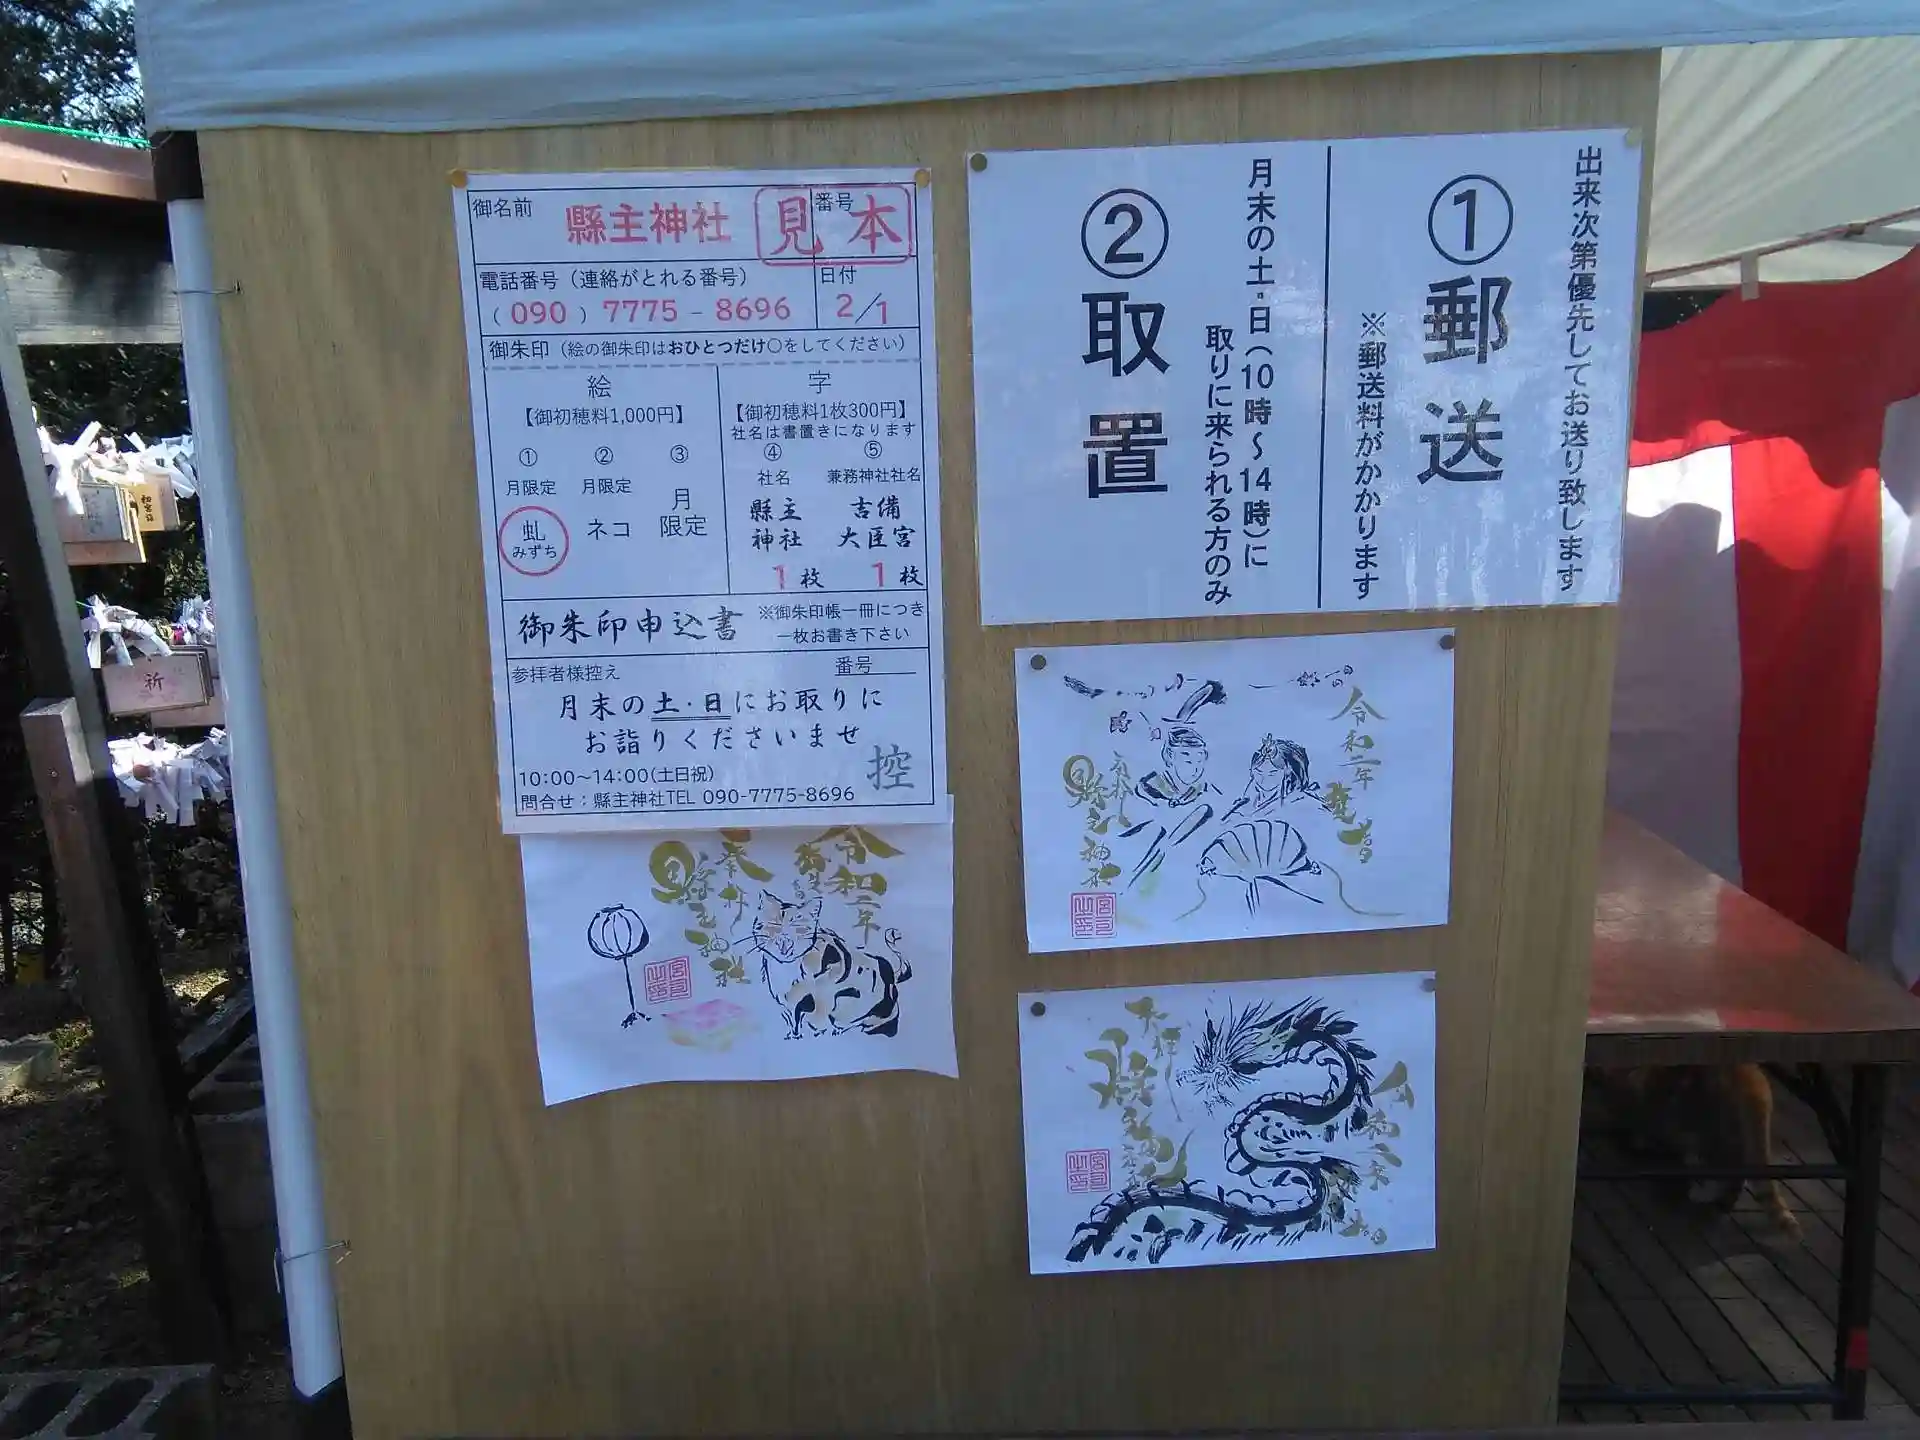 御名前
縣主神社
番号
見本
電話番号（連絡がとれる番号）
（090）7775－8696
日付
2/1
御朱印（絵の御朱印はおひとつだけ○をしてください）
絵
【御初穂料1,000円】
①
月限定
虬
みずち
②
月限定
ネコ
③
月
限定
字
【御初穂料1枚300円】
社名は書置きになります
④
社名
縣主
神社
1枚
⑤
兼務神社社名
吉備
大臣宮
1枚
御朱印申込書
※御朱印帳一冊につき
一枚お書き下さい
参拝者様控え
番号
月末の土・日にお取りに
お詣りくださいませ
控
10:00～14:00(土日祝)
問合せ：縣主神社TEL 090-7775-8696
出来次第優先してお送り致します
①郵送
※郵送料がかかります
月末の土・日（10時～14時）に
取りに来られる方のみ
②取置
令和二年
奉拝
縣主神社
令和二年
縣主神社
令和二年
奉拝